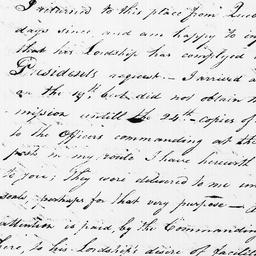 I returned to this place from Queb
days since and am happy to in
that his Lordship has complyed w
Presidents request.— I arrived a
on the 19th. but did not obtain
mission untill the 24th— copies of
to the Officers commanding at the
posts in my route I have herewith
to you; They were delivered to me un
seals, perhaps for that very purpose—
attention is paid, by the Commanding
here, to his Lordship's desire of facilit